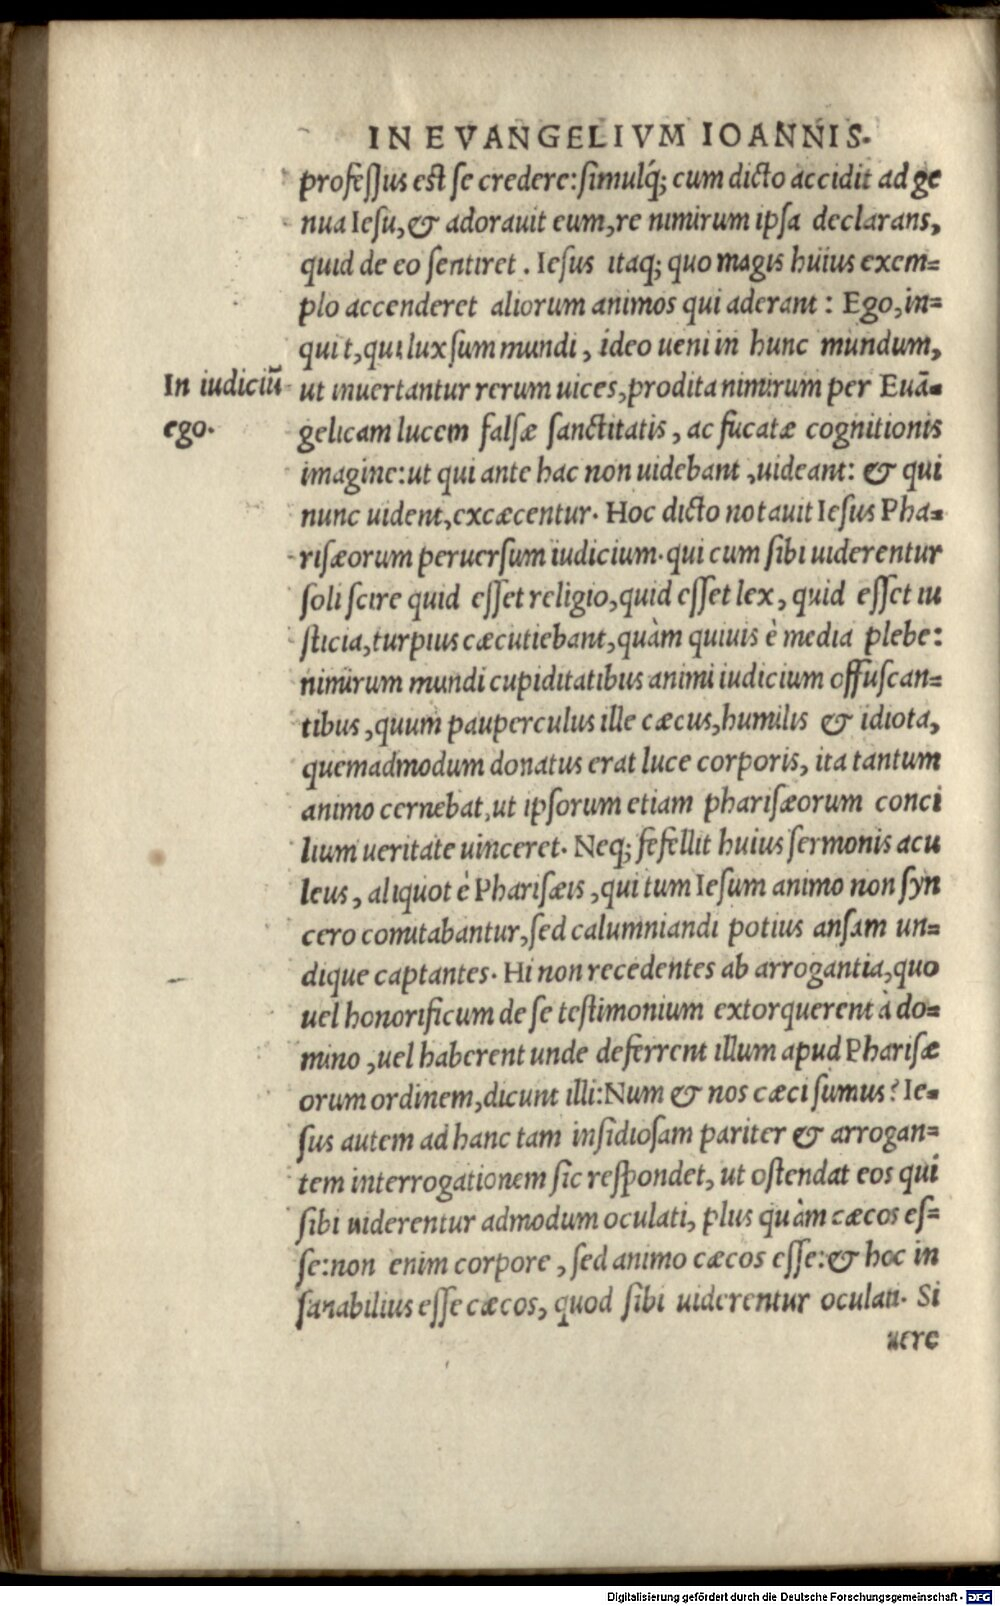 IN EVANGELIVM IOANNIS.
professus est se credere: simulq́; cum dicto accidit ad ge
nua Iesu, & adorauit eum, re nimirum ipsa declarans,
quid de eo sentiret. Iesus itaq; quo magis huius exem=
plo accenderet aliorum animos qui aderant: Ego, in=
quit, qui lux sum mundi, ideo ueni in hunc mundum,
In iudiciū
ego.
ut inuertantur rerum uices, prodita nimirum per Euā=
gelicam lucem falsæ sanctitatis, ac fucatæ cognitionis
imagine: ut qui ante hac non uidebant, uideant: & qui
nunc uident, excæcentur. Hoc dicto notauit Iesus Pha=
risæorum peruersum iudicium. qui cum sibi uiderentur
soli scire quid esset religio, quid esset lex, quid esset iu
sticia, turpius cæcutiebant, quàm quiuis è media plebe:
nimirum mundi cupiditatibus animi iudicium offuscan=
tibus, quum pauperculus ille cæcus, humilis & idiota,
quemadmodum donatus erat luce corporis, ita tantum
animo cernebat, ut ipsorum etiam pharisæorum conci
lium ueritate uinceret. Neq; fefellit huius sermonis acu
leus, aliquot è Pharisæis, qui tum Iesum animo non syn
cero comitabantur, sed calumniandi potius ansam un=
dique captantes. Hi non recedentes ab arrogantia, quo
uel honorificum de se testimonium extorquerent à do=
mino, uel haberent unde deferrent illum apud Pharisæ
orum ordinem, dicunt illi: Num & nos cæci sumus? Ie=
sus autem ad hanc tam insidiosam pariter & arrogan=
tem interrogationem sic respondet, ut ostendat eos qui
sibi uiderentur admodum oculati, plus quàm cæcos es=
se: non enim corpore, sed animo cæcos esse: & hoc in
sanabilius esse cæcos, quod sibi uiderentur oculati. Si
uere
Digitalisierung gefördert durch die Deutsche Forschungsgemeinschaft - DFG